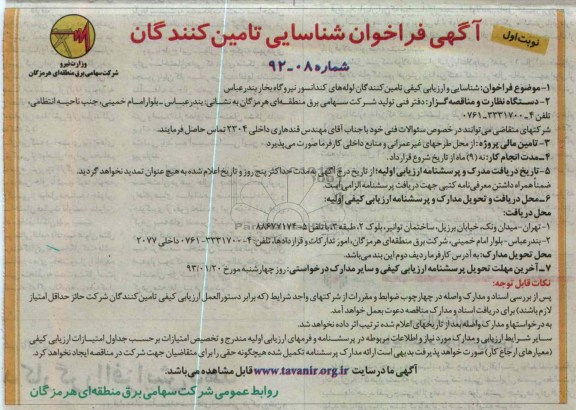 نوبت اول
آگهی فراخوان شناسایی تامین کنندگان
شماره ۰۸-۹۲
وزارت نیرو
شرکت سهامی برق منطقه‌ای هرمزگان
۱-موضوع فراخوان: شناسایی و ارزیابی کیفی تامین کنندگان لوله‌های کندانسور نیروگاه بخار بندرعباس
۲-دستگاه نظارت و مناقصه گزار: دفتر فنی تولید شرکت سهامی برق منطقه‌ای هرمزگان به نشانی: بندرعباس - بلوار امام خمینی، جنب ناحیه انتظامی،
تلفن ۴-۳۳۳۱۷۰۰-۰۷۶۱
شرکتهای متقاضی می‌توانند در خصوص سئوالات فنی خود با جناب آقای مهندس قندهاری داخلی ۲۳۰۴ تماس حاصل فرمایند.
۳-تامین مالی پروژه: از محل طرحهای غیر عمرانی و منابع داخلی کارفرما صورت می‌پذیرد.
۴-مدت انجام کار: نه (۹) ماه از تاریخ شروع قرارداد.
۵-تاریخ دریافت مدرک و پرسشنامه ارزیابی اولیه: از تاریخ درج آگهی به مدت حداکثر پنج روز و تاریخ اعلام شده به هیچ عنوان تمدید نخواهد گردید.
ضمناً همراه داشتن معرفی‌نامه کتبی جهت دریافت پرسشنامه الزامی است.
۶-محل دریافت و تحویل مدارک و پرسشنامه ارزیابی کیفی اولیه:
محل دریافت:
۱- تهران- میدان ونک، خیابان برزیل، ساختمان توانیر، بلوک ۲، طبقه ۳، با تلفن ۵-۸۸۶۷۷۱۷۴
۲-بندرعباس- بلوار امام خمینی، شرکت برق منطقه‌ای هرمزگان، امور تدارکات و قراردادها، تلفن: ۴-۳۳۳۱۷۰۰-۰۷۶۱ داخلی ۲۰۷۷
محل تحویل مدارک: به آدرس کارفرما ردیف دوم این بند می‌باشد.
۷-آخرین مهلت تحویل پرسشنامه ارزیابی کیفی و سایر مدارک درخواستی: روز چهارشنبه مورخ ۹۳/۰۱/۲۰
نکات قابل توجه:
پس از بررسی اسناد و مدارک واصله در چهارچوب ضوابط و مقررات از شرکتهای واجد شرایط (که برابر دستورالعمل ارزیابی کیفی تامین کنندگان شرکت حائز حداقل امتیاز
لازم باشند) برای دریافت اسناد و مدارک مناقصه دعوت بعمل خواهد آمد.
به درخواستها و مدارک واصله بعد از تاریخهای اعلام شده ترتیب اثر داده نخواهد شد.
سایر شرایط ارزیابی و مدارک مورد نیاز و اطلاعات مربوطه در پرسشنامه و فرمهای ارزیابی اولیه مندرج و تخصیص امتیازات بر حسب جداول امتیازات ارزیابی کیفی
(معیارهای ارجاع کار) صورت خواهد پذیرفت بدیهی است ارائه مدارک پرسشنامه تکمیل شده هیچگونه حقی را برای متقاضیان جهت شرکت در مناقصه ایجاد نخواهد کرد.
آگهی ما در سایت www.tavanir.org.ir قابل مشاهده می‌باشد.
روابط عمومی شرکت سهامی برق منطقه‌ای هرمزگان